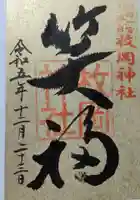 枚岡神社
笑福
令和五年十二月二十三日
枚岡神社